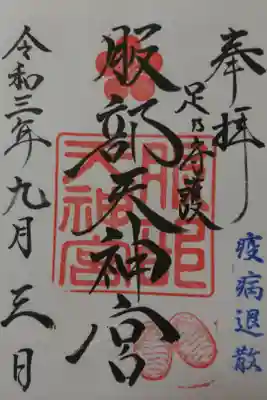 奉拝
足乃守護
疫病退散
服部天神宮
服部
天神宮
令和三年九月三日